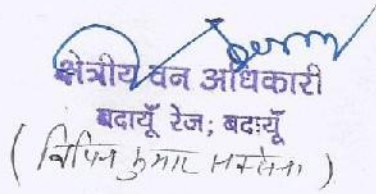 क्षेत्रीय वन अधिकारी
बदायूँ रेज; बदायूँ
(विपिन कुमार सक्सेना)